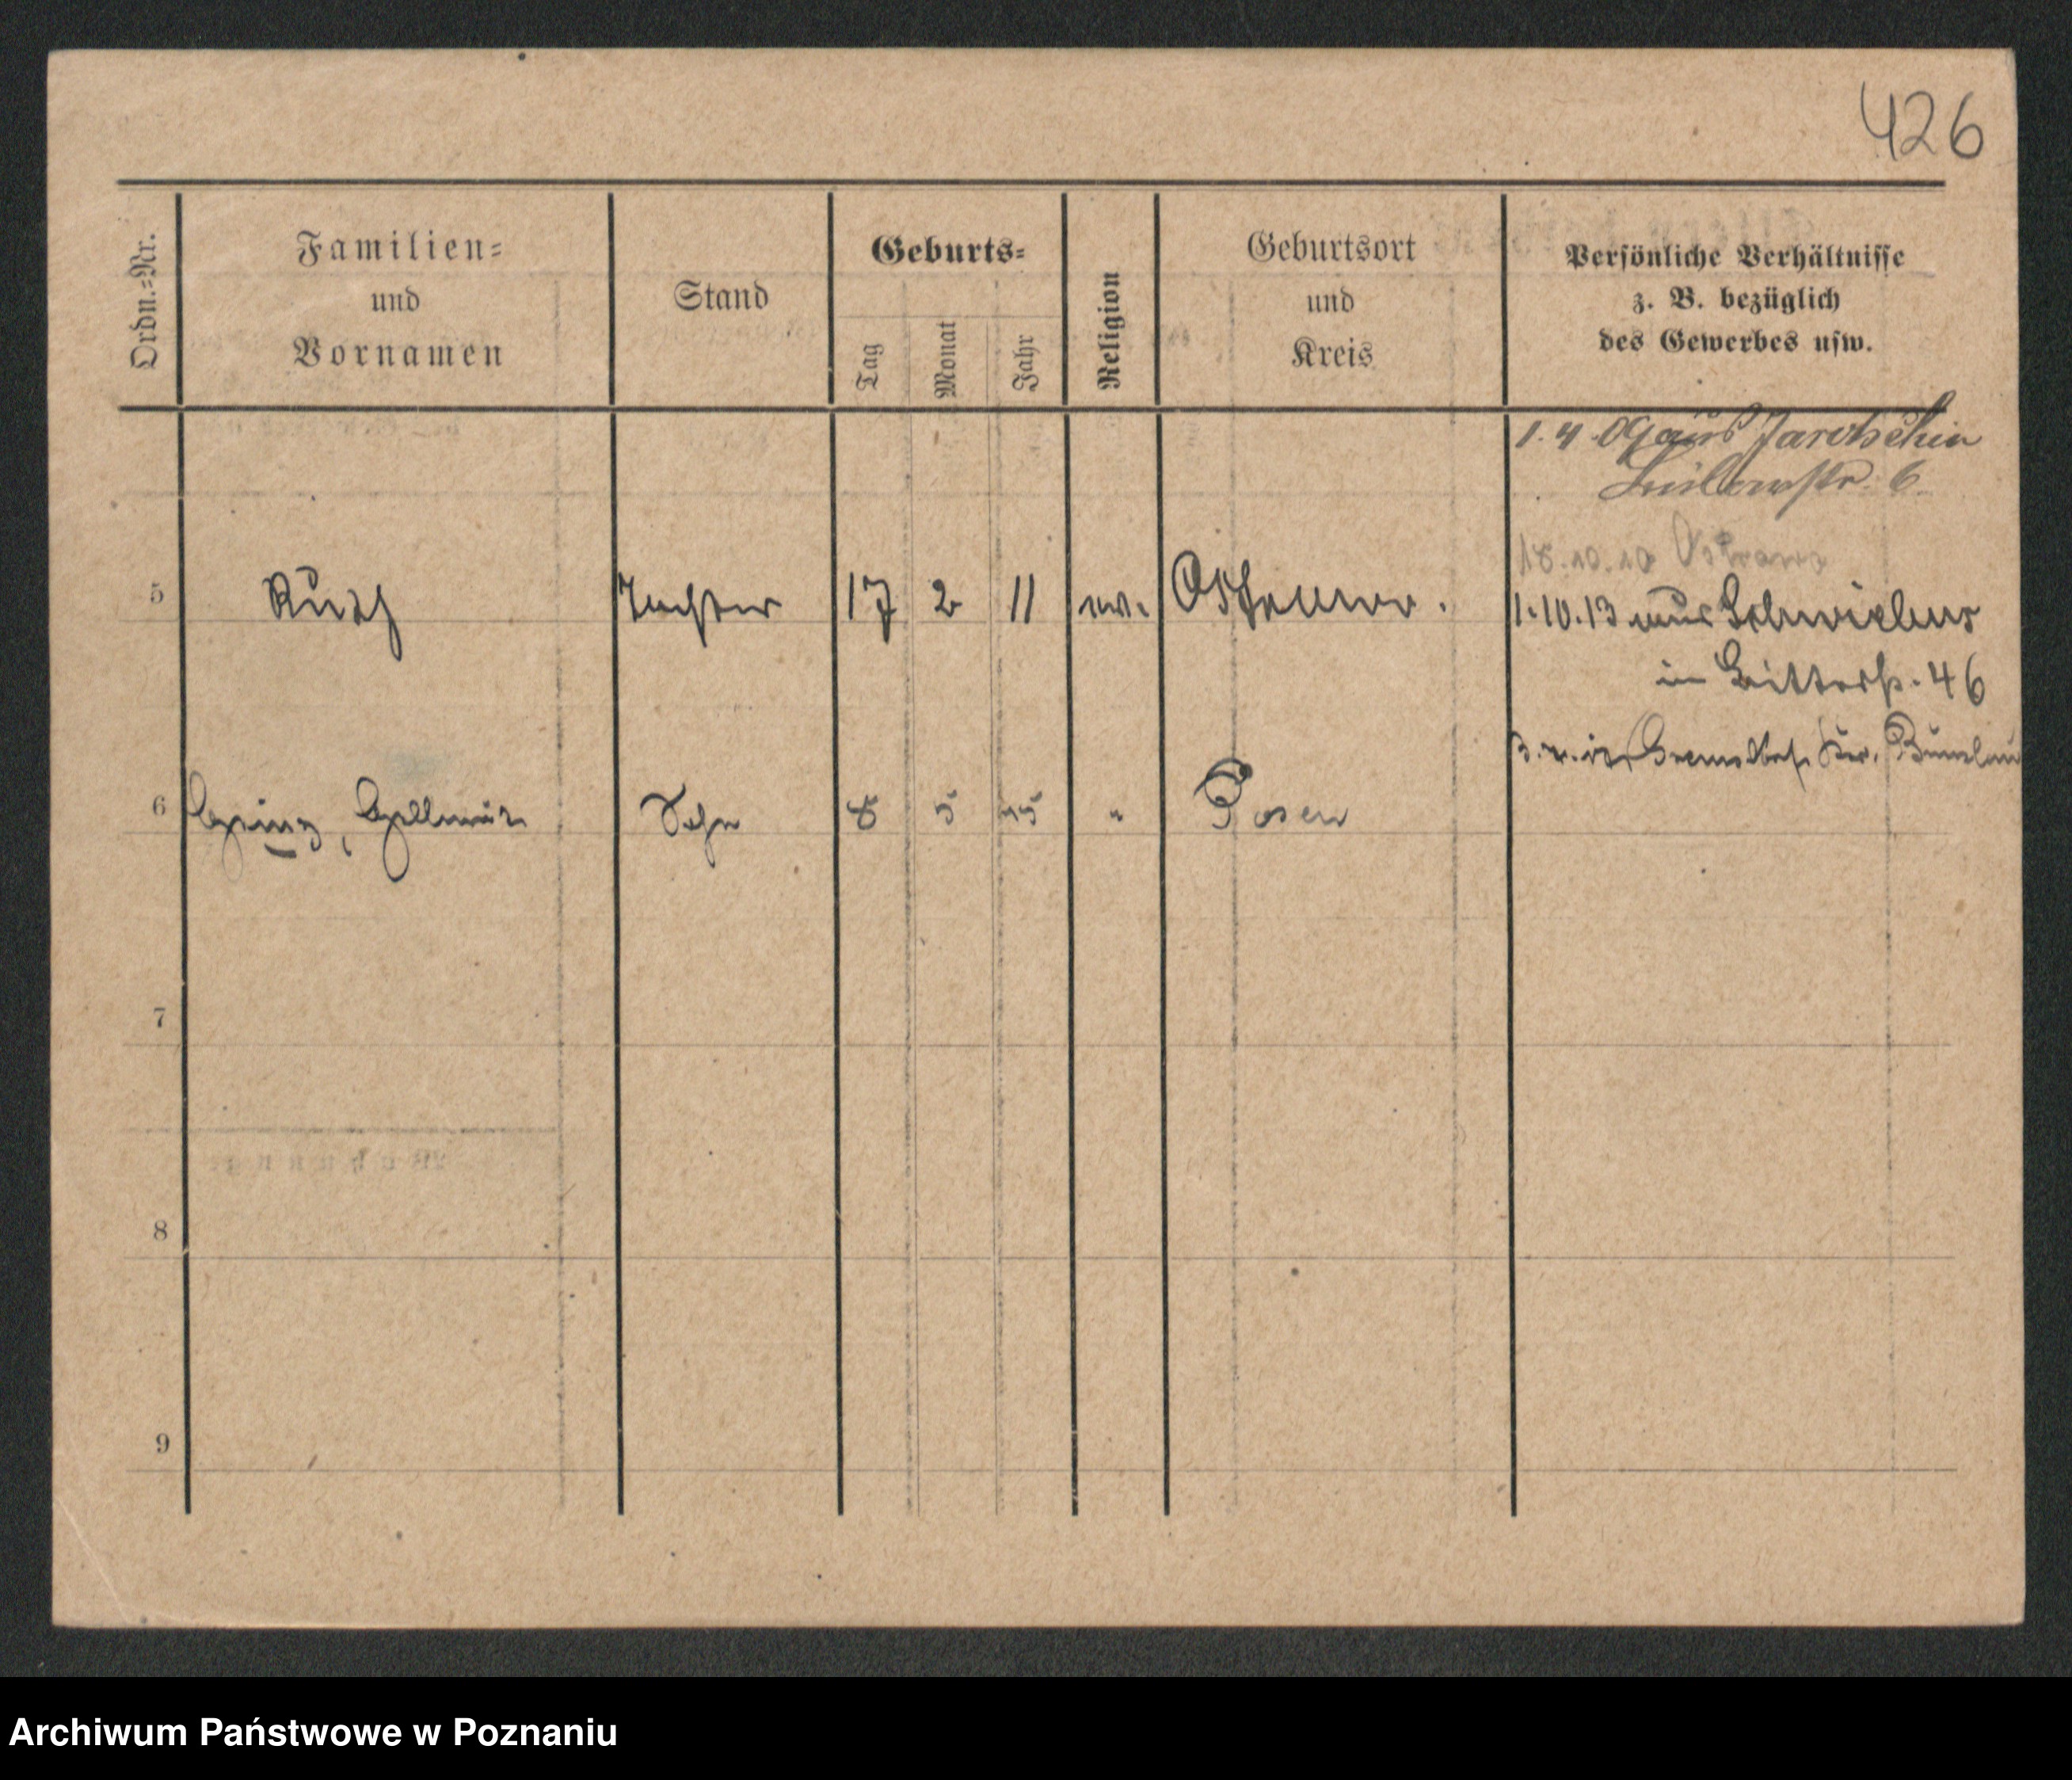 426
Ordn.-Nr.
Familien-
und
Vornamen
Stand
Geburts-
Tag
Monat
Jahr
Religion
Geburtsort
und
Kreis
Persönliche Verhältnisse
z. B. bezüglich
des Gewerbes usw.
1. 4. 09 aus Jarotschin
6.
18.10.10 Ostrowo
5 Ruth Tochter 17 2 11 ev. Ostrowo. 1.10.13 aus Schwiebus
in Bitterstr. 46
Bunzlau
6 Heinz, Hellmut Sohn 8 5 15 " Posen
7
8
9
Wohnung
Archiwum Państwowe w Poznaniu